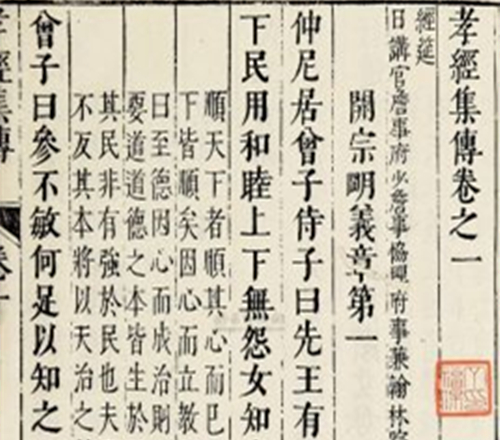 孝經集傳卷之一
經筵
日講官詹事府少詹事協理府事兼翰林院
開宗明義章第一
仲尼居曾子侍子曰先王有
下民用和睦上下無怨女知
順天下者順其心而已
下皆順矣因心而立教
曰至德因心而成治則
要道道德之本皆生於
其民非有強於民也夫
不反其本將以天治之
曾子曰參不敏何足以知之
孝經集傳